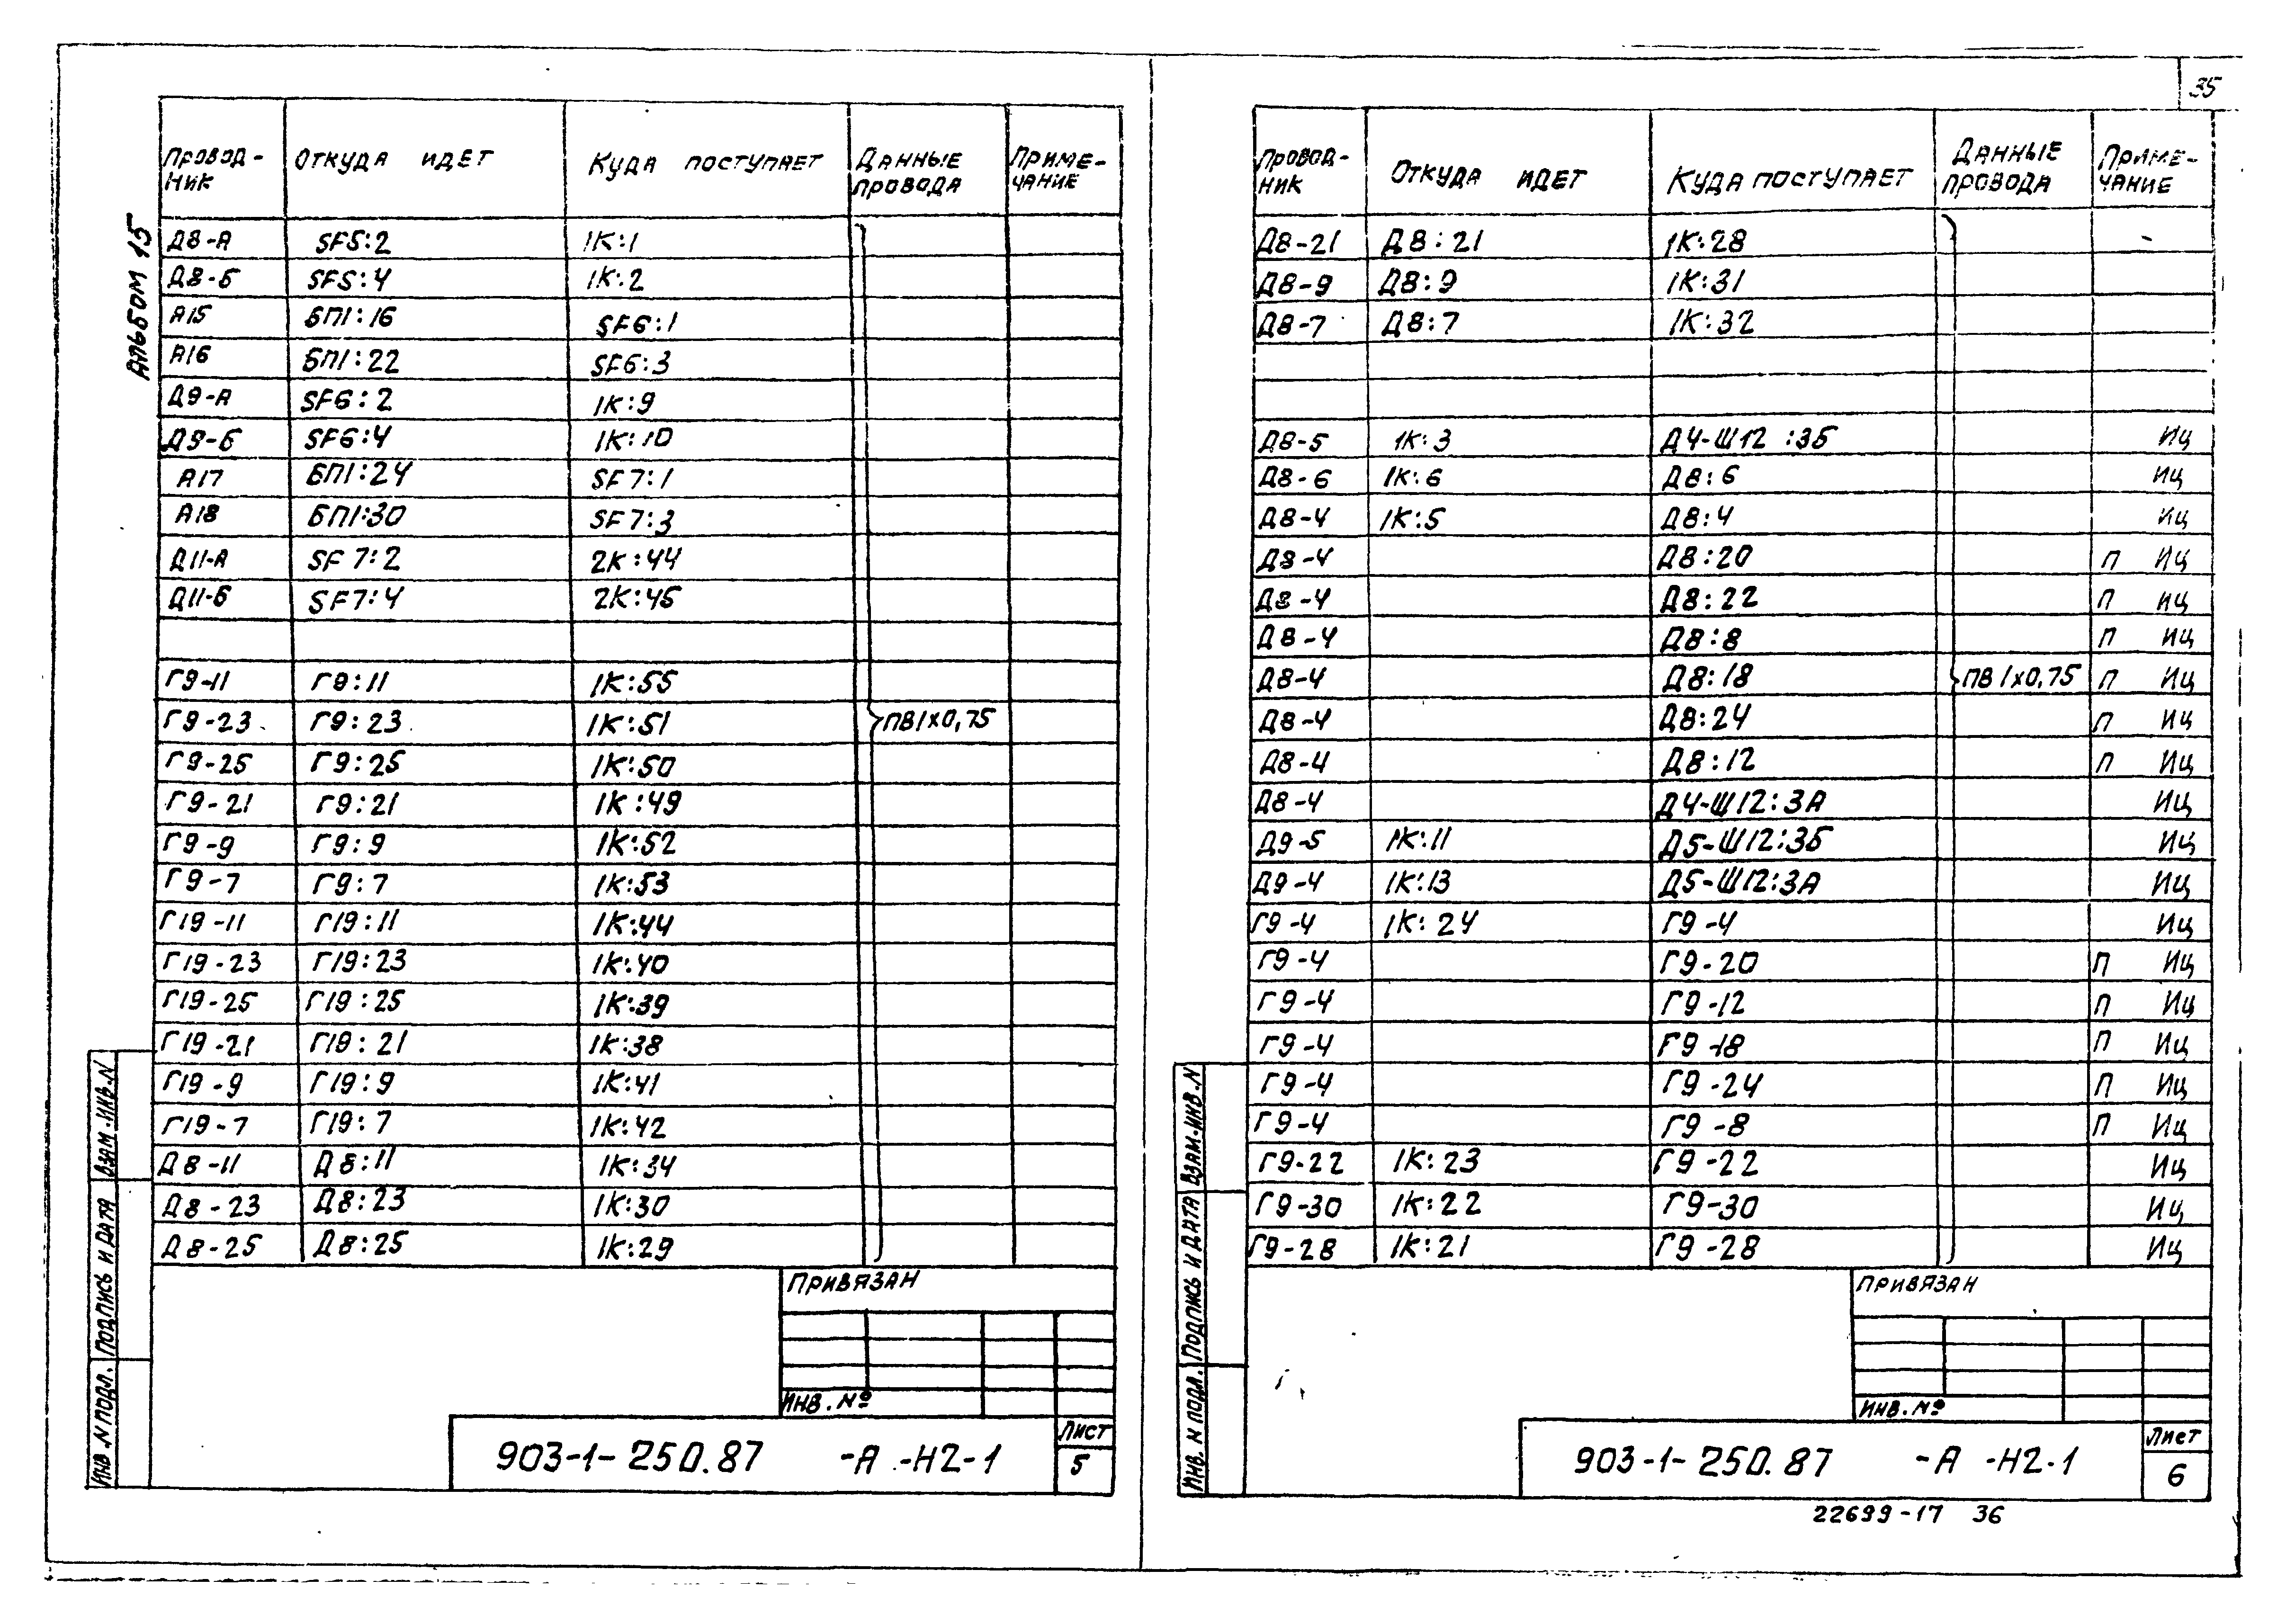 35
АЛЬБОМ 15
ПРОВОД- ОТКУДА ИДЕТ КУДА ПОСТУПАЕТ ДАННЫЕ ПРИМЕ-
НИК ПРОВОДА ЧАНИЕ
Д8-А SF5:2 1К:1
Д8-Б SF5:4 1К:2
А15 БП1:16 SF6:1
А16 БП1:22 SF6:3
Д9-А SF6:2 1К:9
Д9-Б SF6:4 1К:10
А17 БП1:24 SF7:1
А18 БП1:30 SF7:3
Д11-А SF7:2 2К:44
Д11-Б SF7:4 2К:45
Г9-11 Г9:11 1К:55
Г9-23 Г9:23 1К:51 ПВ1х0,75
Г9-25 Г9:25 1К:50
Г9-21 Г9:21 1К:49
Г9-9 Г9:9 1К:52
Г9-7 Г9:7 1К:53
Г19-11 Г19:11 1К:44
Г19-23 Г19:23 1К:40
Г19-25 Г19:25 1К:39
Г19-21 Г19:21 1К:38
Г19-9 Г19:9 1К:41
Г19-7 Г19:7 1К:42
Д8-11 Д8:11 1К:34
Д8-23 Д8:23 1К:30
Д8-25 Д8:25 1К:29
ПРИВЯЗАН
ИНВ.№
903-1-250.87 -А -Н2-1
ЛИСТ
5
ИНВ.N ПОДЛ. ПОДПИСЬ И ДАТА ВЗАМ.ИНВ.N
ПРОВОД- ОТКУДА ИДЕТ КУДА ПОСТУПАЕТ ДАННЫЕ ПРИМЕ-
НИК ПРОВОДА ЧАНИЕ
Д8-21 Д8:21 1К:28
Д8-9 Д8:9 1К:31
Д8-7 Д8:7 1К:32
Д8-5 1К:3 Д4-Ш12:3Б ИЦ
Д8-6 1К:6 Д8:6 ИЦ
Д8-4 1К:5 Д8:4 ИЦ
Д8-4 Д8:20 П ИЦ
Д8-4 Д8:22 П ИЦ
Д8-4 Д8:8 П ИЦ
Д8-4 Д8:18 ПВ1х0,75 П ИЦ
Д8-4 Д8:24 П ИЦ
Д8-4 Д8:12 П ИЦ
Д8-4 Д4-Ш12:3А ИЦ
Д9-5 1К:11 Д5-Ш12:3Б ИЦ
Д9-4 1К:13 Д5-Ш12:3А ИЦ
Г9-4 1К:24 Г9-4 ИЦ
Г9-4 Г9-20 П ИЦ
Г9-4 Г9-12 П ИЦ
Г9-4 Г9-18 П ИЦ
Г9-4 Г9-24 П ИЦ
Г9-4 Г9-8 П ИЦ
Г9-22 1К:23 Г9-22 ИЦ
Г9-30 1К:22 Г9-30 ИЦ
Г9-28 1К:21 Г9-28 ИЦ
ПРИВЯЗАН
ИНВ.№
903-1-250.87 -А -Н2-1
ЛИСТ
6
ИНВ.N ПОДЛ. ПОДПИСЬ И ДАТА ВЗАМ.ИНВ.N
22699-17 36